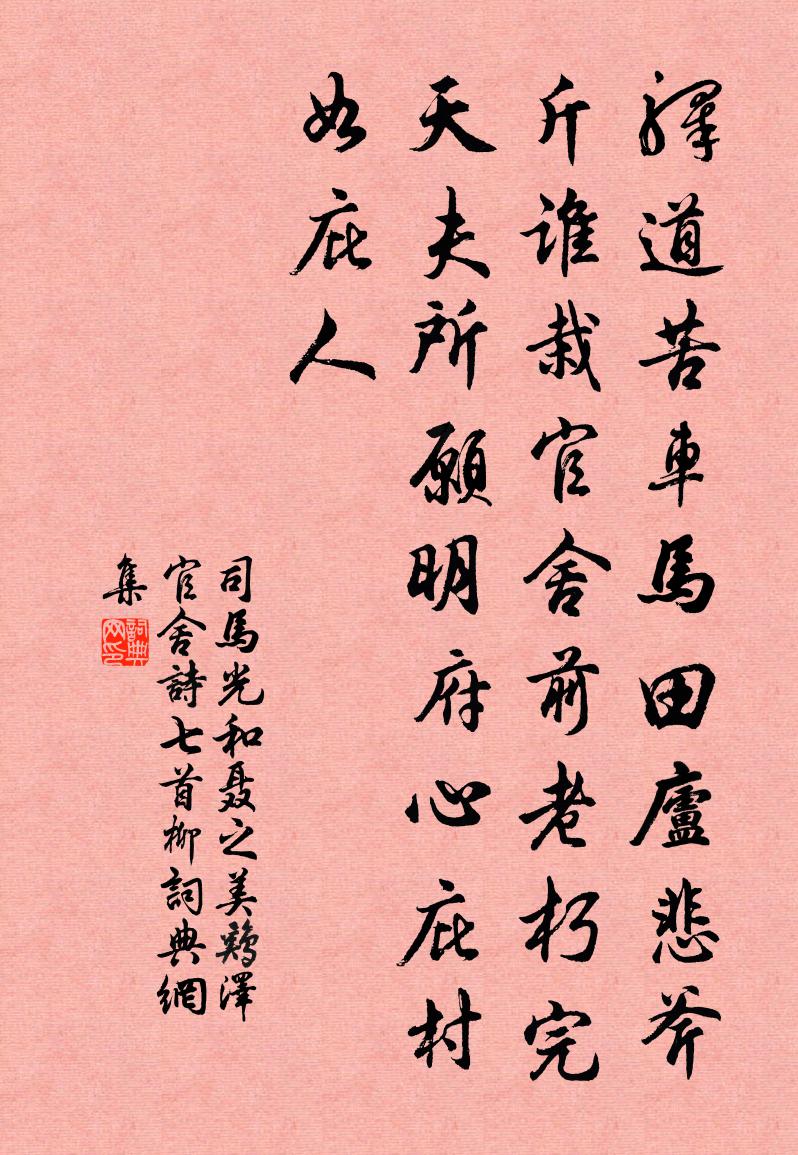 驛道苦車馬田廬悲斧
斤誰栽官舍前老朽完
天夫所願明府心庇村
如庇人
司馬光和聂之美鸡澤
官舍詩七首柳詞典網
集
詞典
网印